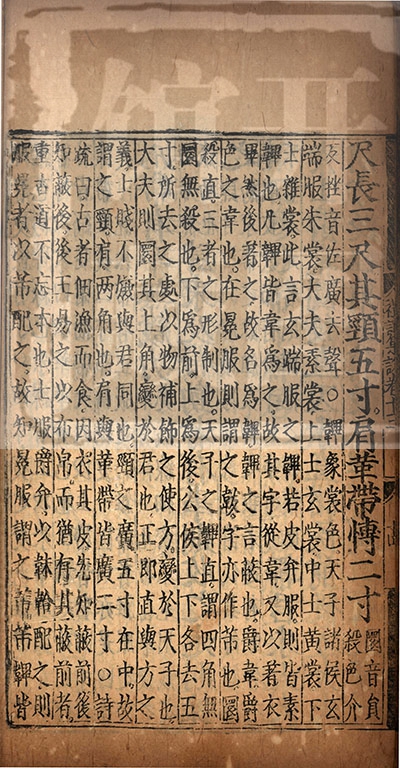 尺長三尺其頸五寸肩革帶博二寸圜音員殺色介
反挫音佐廣去聲○韠象裳色天子諸侯玄
端服朱裳大夫素裳上士玄裳中士黃裳下
士雜裳此言玄端服之韠若皮弁服則皆素
韠也凡韠皆韋爲之故其字從韋又以著衣
畢然後著之故名爲韠韠之言蔽也爵韋爵
色之韋也在冕服則謂之韍字亦作芾也圜
殺直三者之形制也天子之韠直謂四角無
圜無殺也下爲前上爲後公侯上下各去五
寸所去之處以物補飾之使方變於天子也
大夫則圜其上角變於君也正即直與方之
義士賤不嫌與君同也頸之廣五寸在中故
謂之頸有两角也肩與革帶皆廣二寸○詩
疏曰古者佃漁而食因衣其皮先知蔽前後
知蔽後後王易之以布帛而猶存其蔽前者
重古道不忘本也士服爵弁以韎韐配之則
服冕者以芾配之故知冕服謂之芾芾韠皆